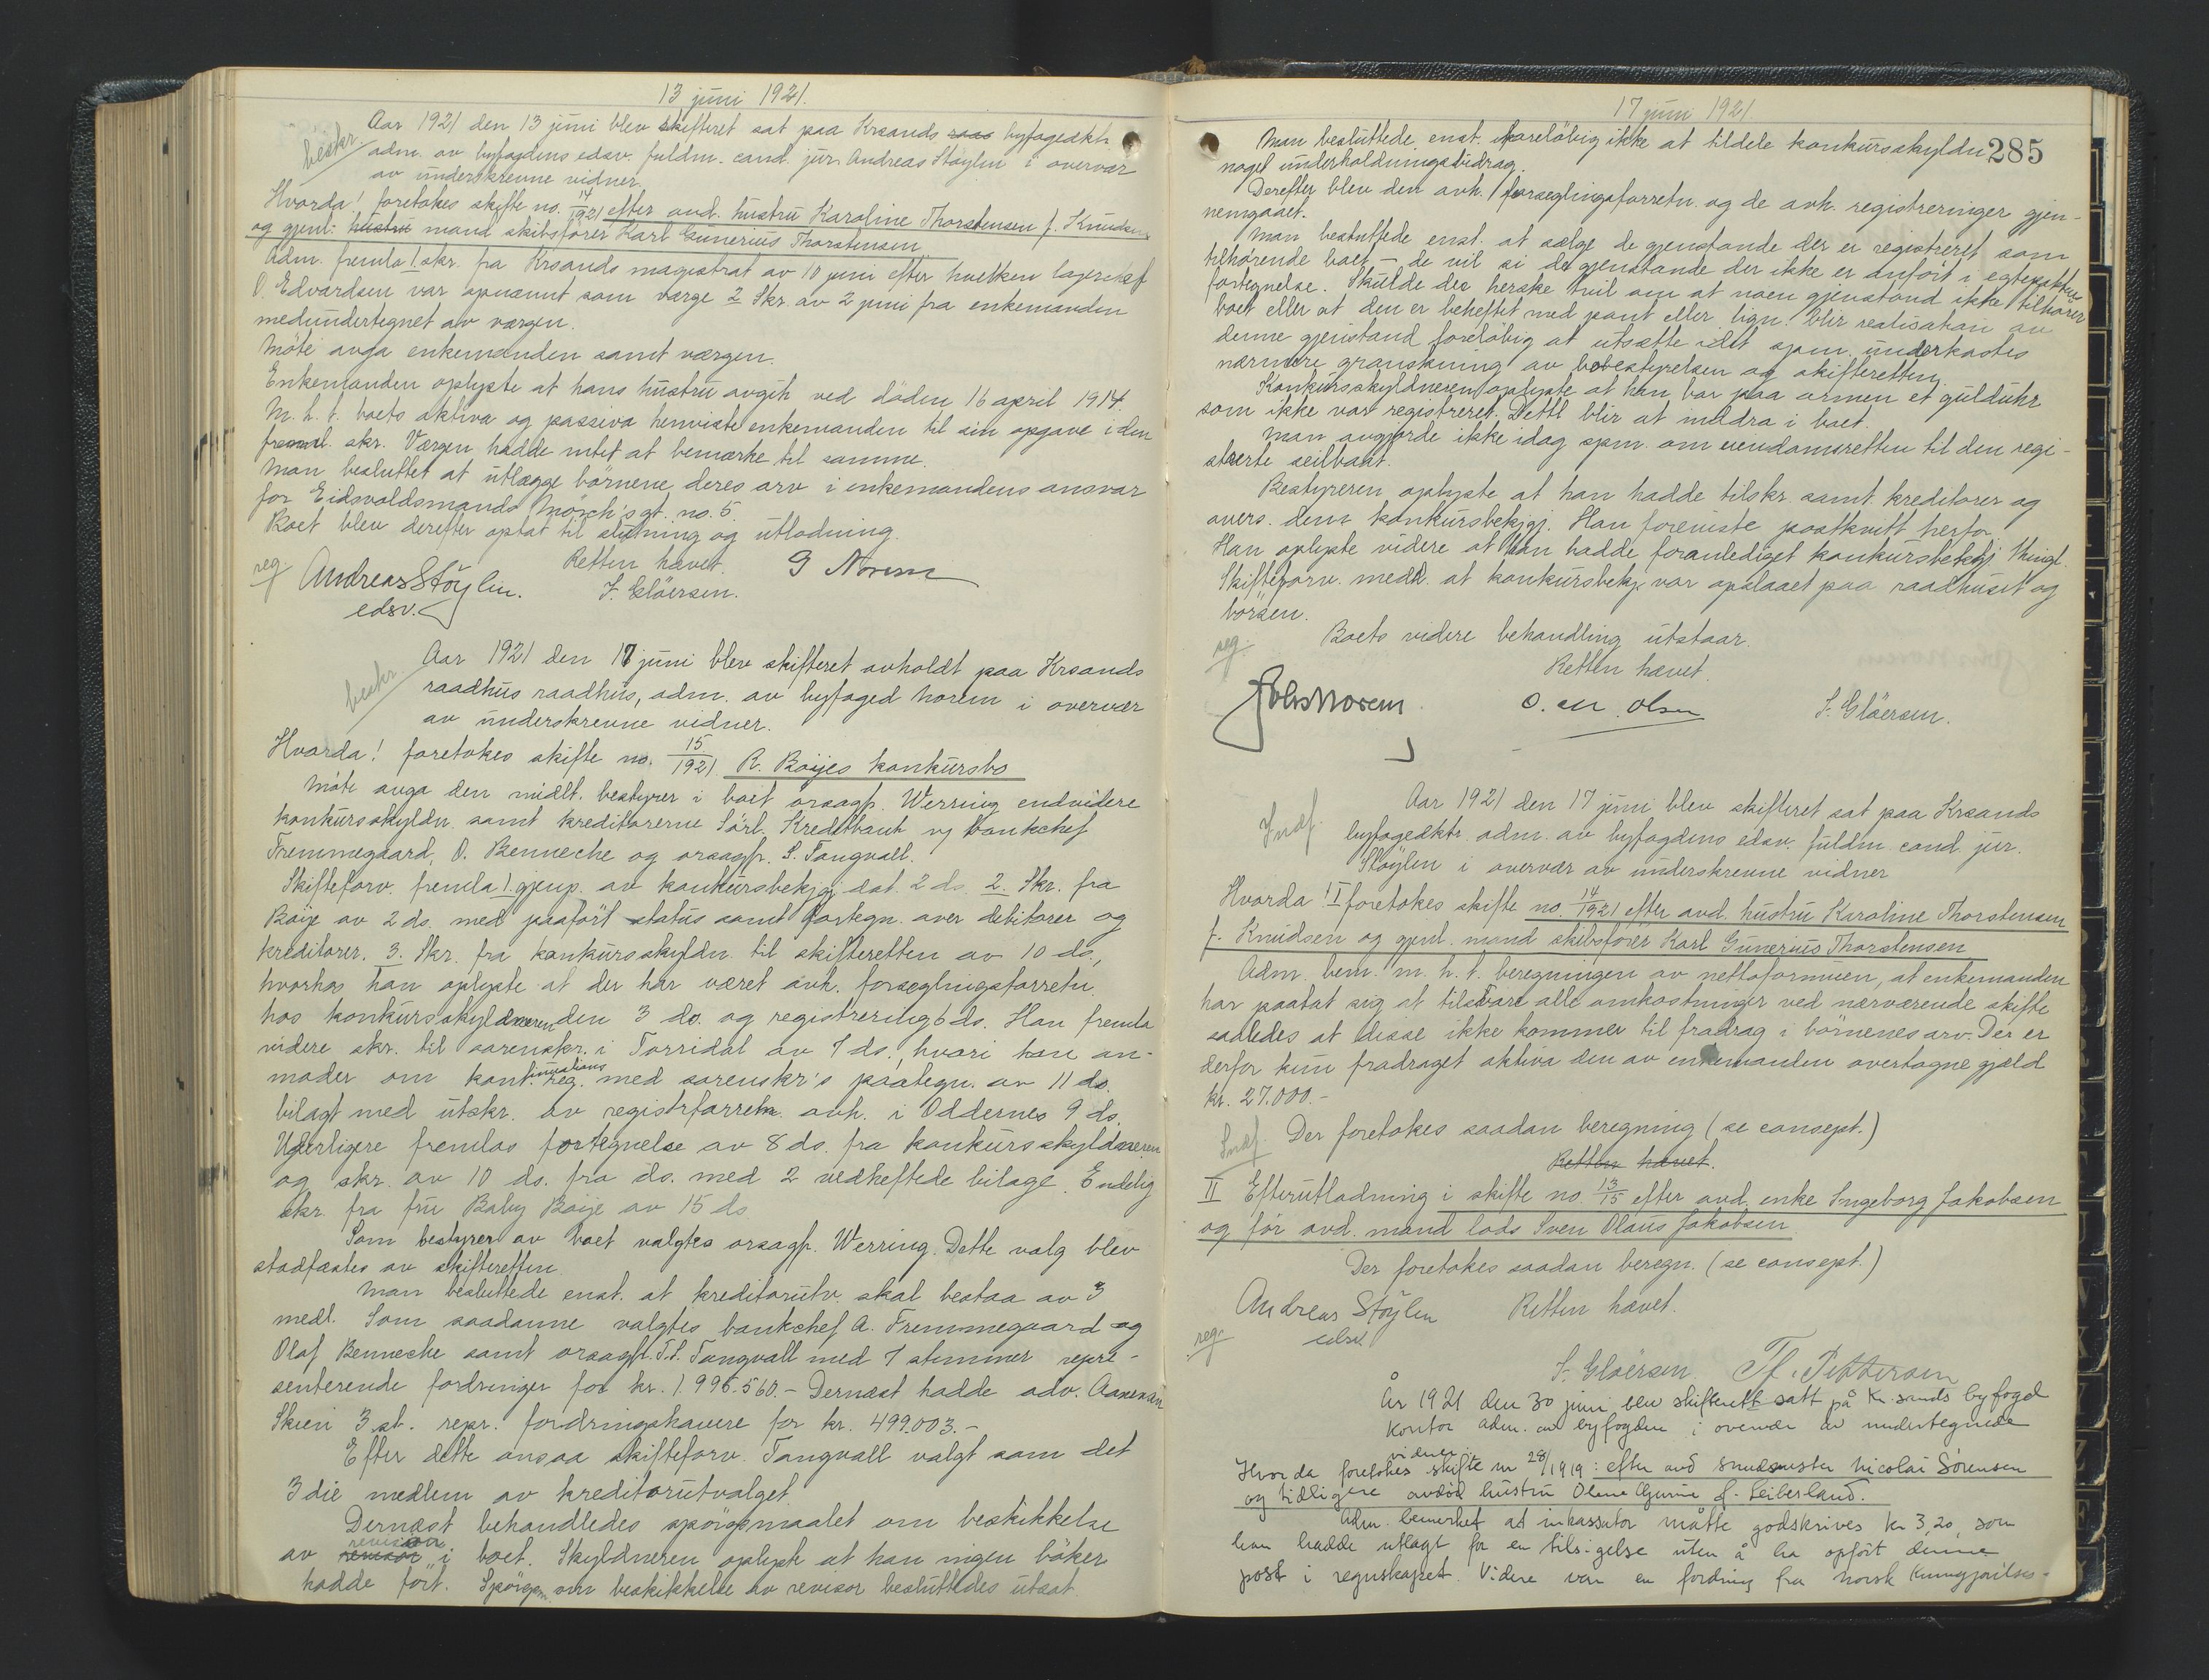 13 juni 1921.
beskr.
Aar 1921 den 13 juni blev skifteret sat paa Krsands saas byfogedktr.
adm. av byfogdens edsv. fuldm. cand. jur. Andreas Støylen i overvær
av underskrevne vidner.
Hvorda! foretokes skifte no. 14/1921 efter avd. hustru Karoline Thorstensen f. Knudsen
og gjenl: hustru mand skibsfører Karl Gunerius Thorstensen
Adm. fremla 1 skr. fra Krsands magistrat av 10 juni efter hvilken lagerchef
O. Edvardsen var opnævnt som værge 2 Skr. av 2 juni fra enkemanden
medundertegnet av værgen.
Møte avga enkemanden samt værgen.
Enkemanden oplyste at hans hustru avgik ved døden 16 april 1914.
M. h. t. boets aktiva og passiva henviste enkemanden til sin opgave i den
fremal. skr. Værgen hadde intet at bemærke til samme.
Man besluttet at utlægge børnene deres arv i enkemandens ansvar
for Eidsvoldsmand Mørch's gt. no. 5.
Boet blev derefter optat til slutning og utlodning.
Retten hævet.
reg.
Andreas Støylen.
edsv.
F. Gløersen.
G Norem
beskr.
Aar 1921 den 17 juni blev skifteret avholdt paa Krsands
raadhus raadhus, adm. av byfoged Norem i overvær
av underskrevne vidner.
Hvorda! foretokes skifte no. 15/1921 R. Boijes konkursbo
Møte avga den midlt. bestyrer i boet orsagf. Werring endvidere
konkursskyldn. samt kreditorerne Sørl. Kreditbank v/ bankchef
Fremmegaard, O. Benneche og orsagf. S. Tangvall.
Skifteforv. fremla 1. gjenp. av konkursbekjgj. dat. 2 ds. 2. Skr. fra
Boije av 2 ds. med paaført status samt fortegn. over debitorer og
kreditorer. 3. Skr. fra konkursskyldn. til skifteretten av 10 ds.,
hvorhos han oplyste at der har været avh. forseglingsforretn.
hos konkursskyldneren den 3 ds. og registrering 6 ds. Han fremla
videre skr. til sorenskr. i Torridal av 7 ds., hvori han an-
moder om kont.inuations reg. med sorenskr's paategn. av 11 ds.
bilagt med utskr. av registrforretn. avh. i Oddernes 9 ds.
Yderligere fremlas fortegnelse av 8 ds. fra konkursskyldneren
og skr. av 10 ds. fra ds. med 2 vedheftede bilage. Endelig
skr. fra fru Baby Boije av 15 ds.
Som bestyrer av boet valgtes orsagf. Werring. Dette valg blev
stadfæstes av skifteretten.
Man besluttede enst. at kreditorutv. skal bestaa av 3
medl. Som saadanne valgtes bankchef A. Fremmegaard og
Olaf Benneche samt orsagf. T. S. Tangvall med 7 stemmer repre-
senterende fordringer for kr. 1.995.560.- Dernæst hadde adv. Aanensen
Skien 3 st. repr. fordringshavere for kr. 499.003.-
Efter dette ansaa skifteforv. Tangvall valgt som det
3die medlem av kreditorutvalget.
Dernæst behandledes spørgsmaalet om beskikkelse
av revisor revisor i boet. Skyldneren oplyste at han ingen bøker
hadde ført. Spørgsm. om beskikkelse av revisor besluttedes utsat.
17 juni 1921.
285
Man besluttede enst. foreløbig ikke at tildele konkursskyldn.
noget underholdningsbidrag.
Derefter blev den avh. forseglingsforretn. og de avh. registreringer gjen-
nemgaaet.
Man besluttede enst. at sælge de gjenstande der er registreret som
tilhørende boet - de vil si de gjenstande der ikke er anført i egtepaktens
fortegnelse. Skulde der herske tvil om at noen gjenstand ikke tilhører
boet eller at den er beheftet med pant eller lign. blir realisation av
denne gjenstand foreløbig at utsætte idet spm. underkastes
nærmere granskning av bobestyrelsen og skifteretten.
Konkursskyldneren oplyste at han bar paa armen et gulduhr
som ikke var registreret. Dette blir at inddra i boet.
Man avgjorde ikke idag spm. om eiendomsretten til den regi-
strerte seilbaat.
Bestyreren oplyste at han hadde tilskr. samt. kreditorer og
overs. dem konkursbekjgj. Han foreviste postkvitt. herfor.
Han oplyste videre at han hadde foranlediget konkursbekjgj. thingl.
Skifteforv. medd. at konkursbekj. var opslaaet paa raadhuset og
børsen.
Boets videre behandling utstaar.
reg.
Retten hævet.
Johs Norem
O. M. Olsen
F. Gløersen.
Indf.
Aar 1921 den 17 juni blev skifteret sat paa Krsands
byfogedktr. adm. av byfogdens edsv. fuldm. cand. jur.
Støylen i overvær av underskrevne vidner
Hvorda! I foretokes skifte no. 14/1921 efter avd. hustru Karoline Thorstensen
f. Knudsen og gjenl. mand skibsfører Karl Gunerius Thorstensen
Adm. bem. m. h. t. beregningen av nettoformuen, at enkemanden
har paatat sig at tilsvare alle omkostninger ved nærværende skifte
saaledes at disse ikke kommer til fradrag i børnenes arv. Der er
derfor kun fradraget aktiva den av enkemanden overtagne gjæld
kr. 27.000.-
Indf
Der foretokes saadan beregning (se consept.)
Retten hævet.
II Efterutlodning i skifte no. 13/15 efter avd. enke Ingeborg Jakobsen
og før avd. mand lods Sven Olaus Jakobsen
Der foretokes saadan beregn. (se consept.)
Andreas Støylen
Retten hævet.
reg.
edsv.
F. Gløersen.
Th. Pettersen
År 1921 den 30 juni blev skifterett satt på Kr.sands byfogd
kontor adm. av byfogden i overvær av undertegnede
vidner.
Hvorda foretokes skifte nr 28/1919: efter avd snedkermester Nicolai Sørensen
og tidligere avdød hustru Olene Gurine f. Leiberland.
Adm. bemerket at inkassator måtte godskrives kr 3,20, som
han hadde utlagt for en tilsigelse uten å ha opført denne
post i regnskapet. Videre var en fordring fra Norsk Kunngjørelses-